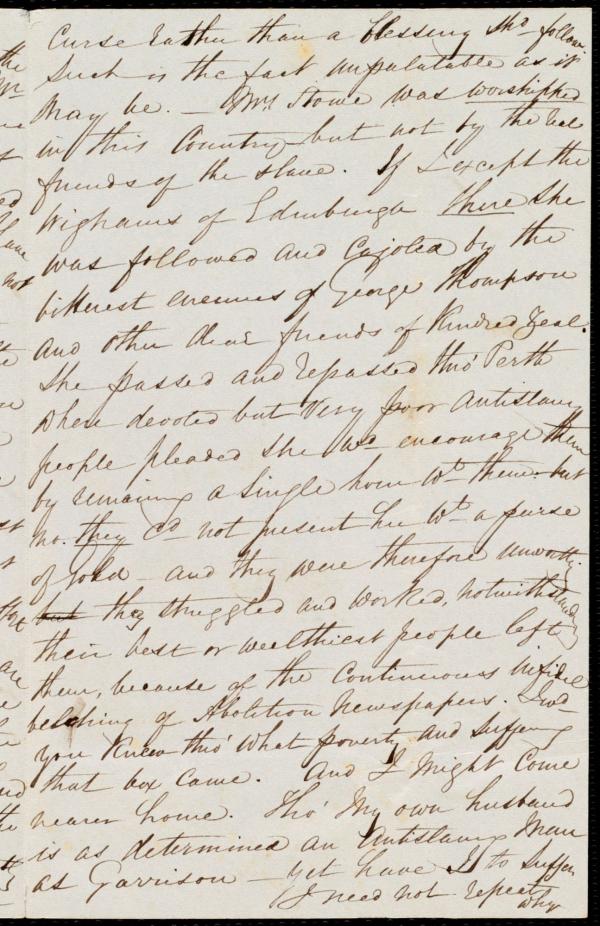 Curse rather than a blessing shd follow.
Such is the fact unpalatable as it
may be. — Mrs Stowe was worshipped
in this Country but not by the real
friends of the slave. If I except the
Wighams of Edinburgh there she
was followed and Cajoled by the
bitterest enemies of George Thompson
and other dear friends of Kindred Zeal.
She passed and repassed thro' Perth
where devoted but very poor antislavery
people pleaded she wd encourage them
by remaining a single hour wt them but
no. they Cd not present her wt a purse
of gold — and they were therefore unworthy.
but they struggled and worked, notwithstanding
their best or wealthiest people left
them, because of the continuous infidel
belching of Abolition Newspapers.
you knew thro' what poverty and suffering
that box came. And I might come
nearer home. Tho' My own husband
is as determined an Antislavery Man
as Garrison — yet have I to suffer
I need not repeat why